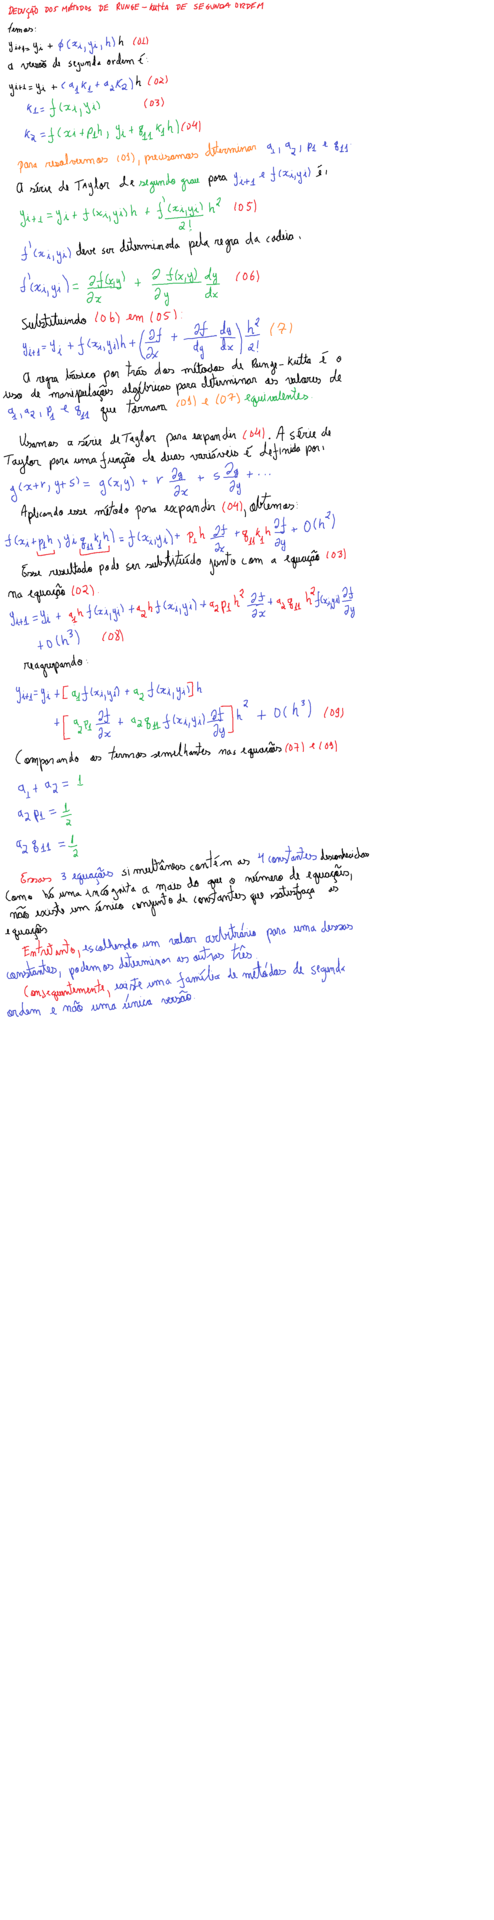 DEDUÇÃO DOS MÉTODOS DE RUNGE-Kutta DE SEGUNDA ORDEM
temos:
y_{i+1} = y_i + ϕ(x_i, y_i, h)h (01)
a versão de segunda ordem é:
y_{i+1} = y_i + (a_1 k_1 + a_2 k_2)h (02)
k_1 = f(x_i, y_i) (03)
k_2 = f(x_i + p_1 h, y_i + q_{11} k_1 h) (04)
para resolvermos (01), precisamos determinar a_1, a_2, p_1 e q_{11}.
A série de Taylor de segundo grau para y_{i+1} e f(x_i, y_i) é:
y_{i+1} = y_i + f(x_i, y_i)h + f'(x_i, y_i)/2! h² (05)
f'(x_i, y_i) deve ser determinada pela regra da cadeia.
f'(x_i, y_i) = ∂f(x,y)/∂x + ∂f(x,y)/∂y dy/dx (06)
Substituindo (06) em (05):
y_{i+1} = y_i + f(x_i, y_i)h + (∂f/∂x + ∂f/dy dy/dx) h²/2! (7)
A regra básica por trás dos métodos de Runge-Kutta é o
uso de manipulações algébricas para determinar os valores de
a_1, a_2, p_1 e q_{11} que tornam (01) e (07) equivalentes
Usamos a série de Taylor para expandir (04). A série de
Taylor para uma função de duas variáveis é definida por:
g(x+r, y+s) = g(x,y) + r ∂g/∂x + s ∂g/∂y + ...
Aplicando esse método para expandir (04), obtemos:
f(x_i + p_1 h, y_i + q_{11} k_1 h) = f(x_i, y_i) + p_1 h ∂f/∂x + q_{11} k_1 h ∂f/∂y + O(h²)
Esse resultado pode ser substituído junto com a equação (03)
na equação (02).
y_{i+1} = y_i + a_1 h f(x_i, y_i) + a_2 h f(x_i, y_i) + a_2 p_1 h² ∂f/∂x + a_2 q_{11} h² f(x_i, y_i) ∂f/∂y
+ O(h³) (08)
reagrupando:
y_{i+1} = y_i + [a_1 f(x_i, y_i) + a_2 f(x_i, y_i)]h
+ [a_2 p_1 ∂f/∂x + a_2 q_{11} f(x_i, y_i) ∂f/∂y] h² + O(h³) (09)
Comparando os termos semelhantes nas equações (07) e (09)
a_1 + a_2 = 1
a_2 p_1 = 1/2
a_2 q_{11} = 1/2
Essas 3 equações simultâneas contêm as 4 constantes desconhecidas
Como há uma incógnita a mais do que o número de equações,
não existe um único conjunto de constantes que satisfaça as
equações
Entretanto, escolhendo um valor arbitrário para uma dessas
constantes, podemos determinar as outras três
Consequentemente, existe uma família de métodos de segunda
ordem e não uma única versão